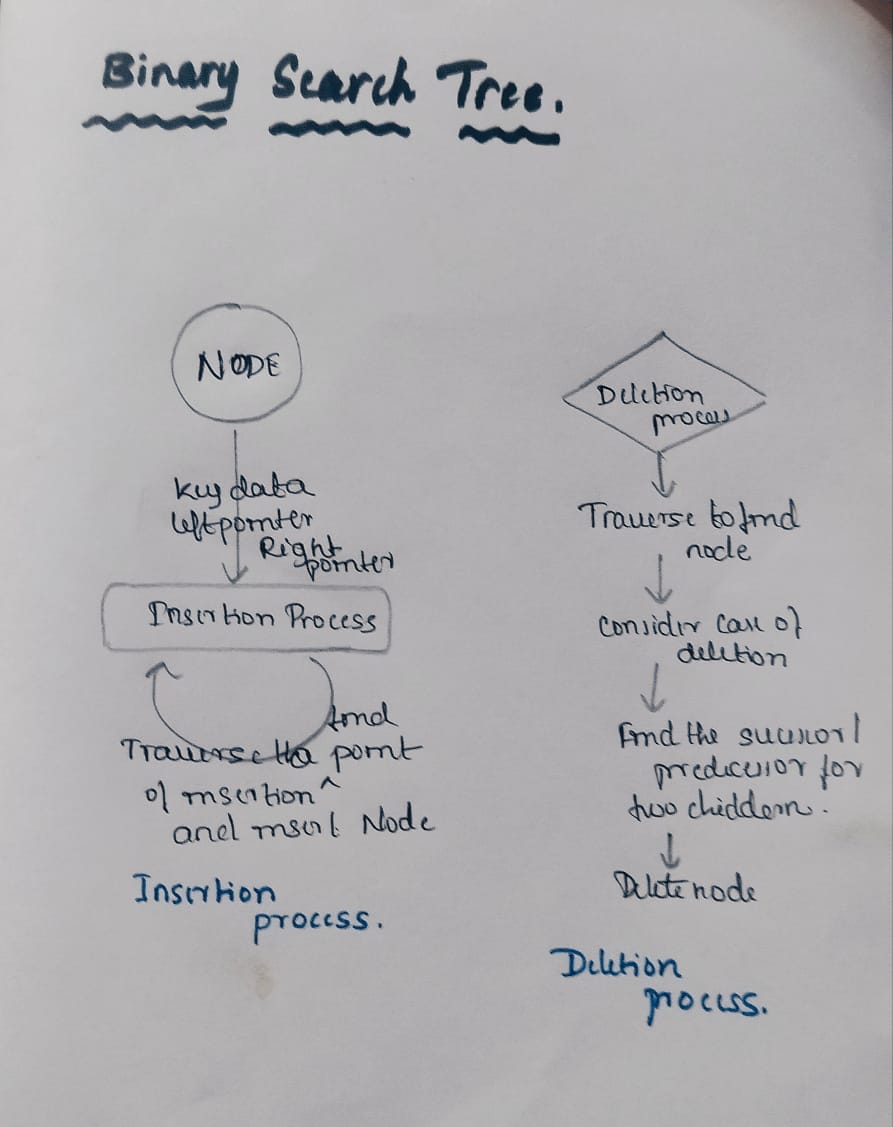 Binary Search Tree.
NODE
Key data
left pointer
Right
pointer
Insertion Process
find
Traverse the point
of insertion ^
and insert Node
Insertion
process.
Deletion
process
Traverse to find
node
Consider case of
deletion
Find the successor/
predecessor for
two childern.
Delete node
Deletion
process.